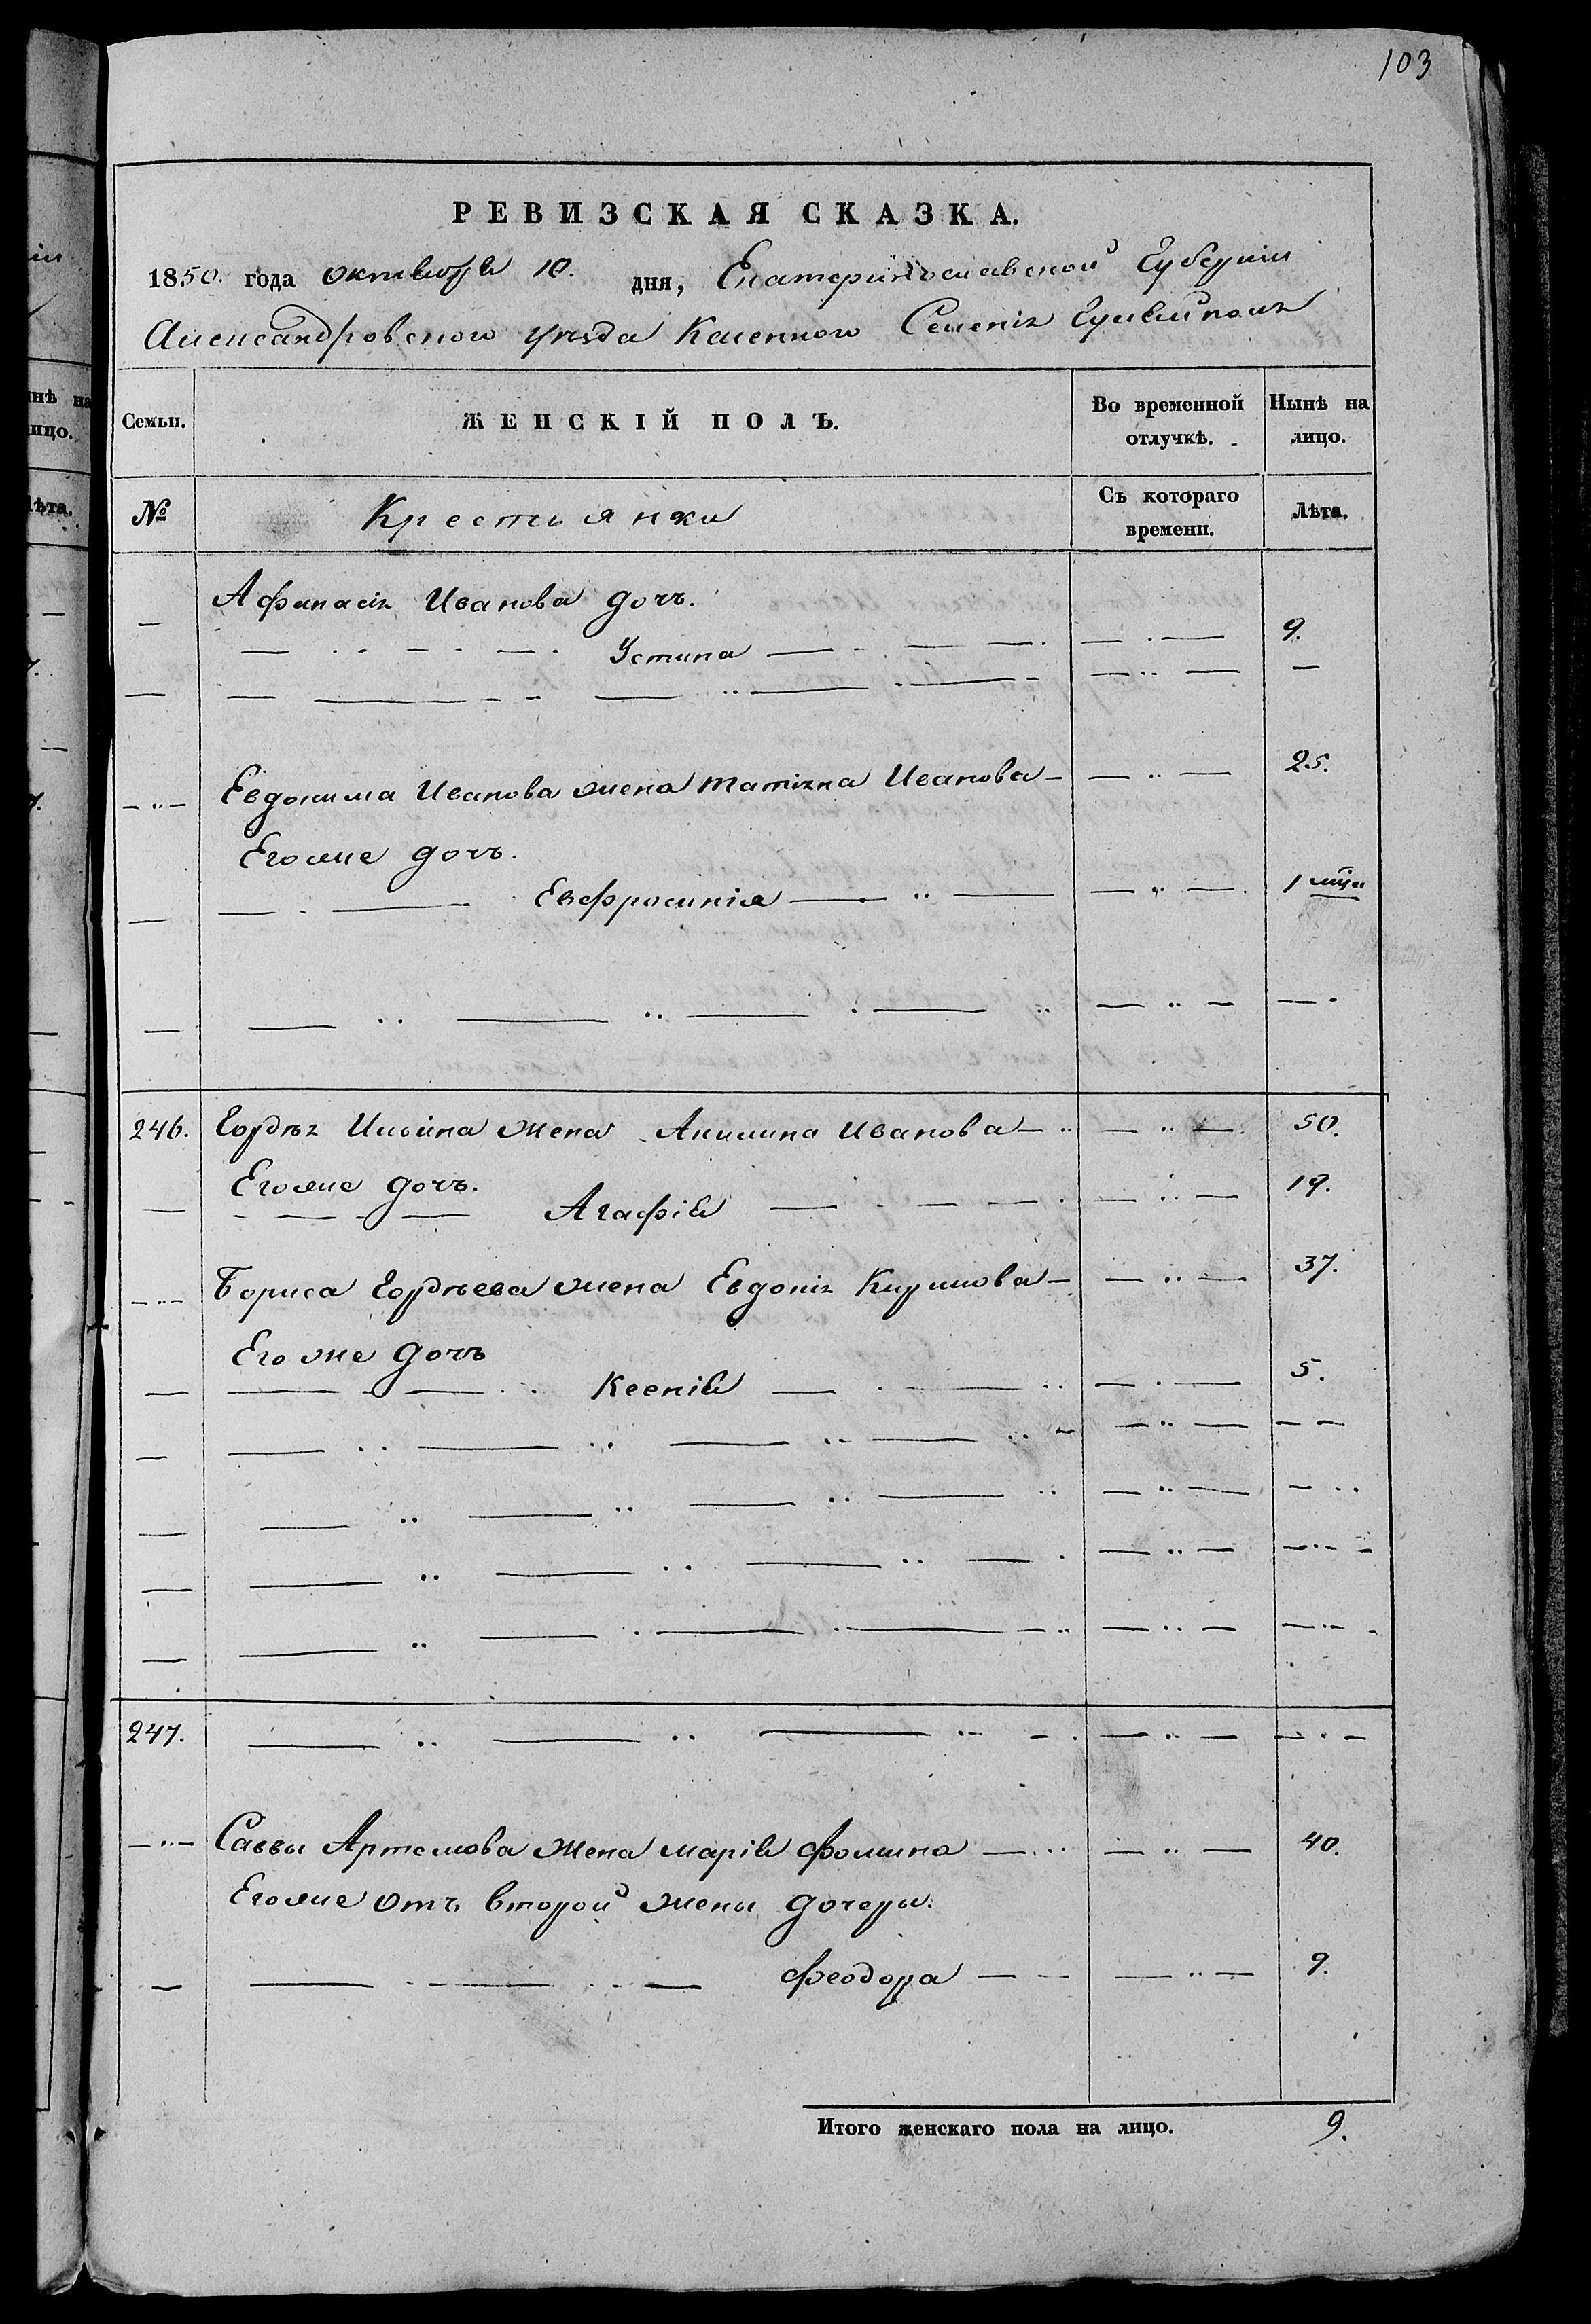 103
РЕВИЗСКАЯ СКАЗКА.
1850. года октября 10. дня, Екатеринославской Губернiи
Александровского уѣзда Казенного Селенiя Гуляйполя
Семьи. ЖЕНСКIЙ ПОЛЪ. Во временной отлучкѣ. Нынѣ на лицо.
№ Крестьянки Съ котораго времени. Лѣта.
Афанасiя Иванова дочь.
Устина 9.
Евдокима Иванова жена татiяна Иванова 25.
Его же дочь.
Евфросинiя 1 мца
246. Гордѣя Ильина жена Акилина Иванова 50.
Его же дочь.
Агафiя 19.
Бориса Гордѣева жена Евдокiя Кирилова 37.
Его же дочь
Ксенiя 5.
247.
Саввы Артемова жена марiя фомина 40.
Его же отъ второй жены дочеры.
феодора 9.
Итого женскаго пола на лицо. 9.